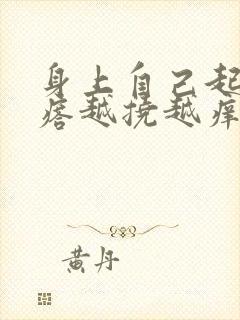 身上自己起
痞越挠越痒
黄丹